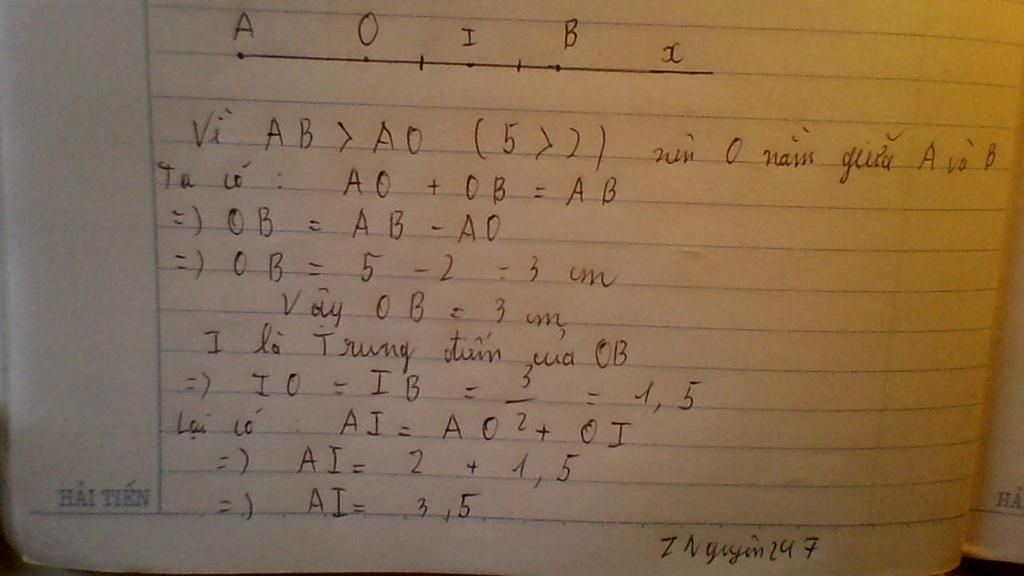 A O I B x
Vì AB > AO (5 > 2) nên O nằm giữa A và B
Ta có : AO + OB = AB
=) OB = AB - AO
=) OB = 5 - 2 = 3 cm
Vậy OB = 3 cm
I là Trung điểm của OB
=) IO = IB = 3/2 = 1,5
Lại có : AI = AO + OI
=) AI = 2 + 1,5
=) AI = 3,5
HẢI TIẾN
HẢ
INguyên247